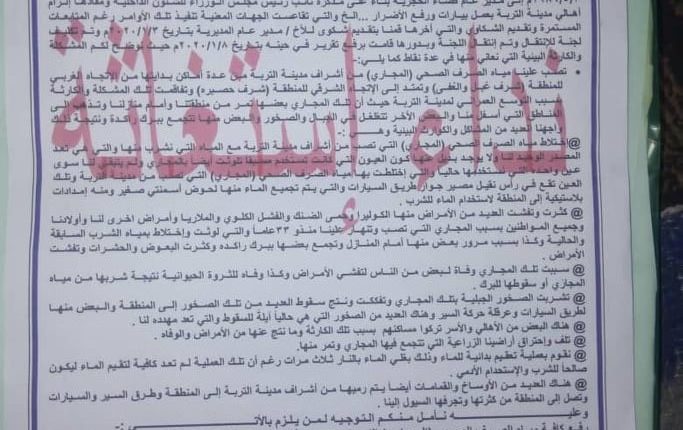 إلى مدير عام قضاء الحجرية بناء على مذكرة نائب رئيس مجلس الوزراء للشئون الداخلية ومفادها إلزام
أهالي مدينة التربة بعمل بيارات ورفع الأضرار ... الخ والتي تقاعست الجهات المعنية تنفيذ تلك الأوامر رغم المتابعات
المستمرة وتقديم الشكاوي والتي أخرها قمنا بتقديم شكوى للأخ / مدير عام المديرية بتاريخ ٢٠٢٠/١/٣م وتم تكليف
لجنة للإنتقال وتم إنتقال اللجنة وبدورها قامت برفع تقرير في حينه بتاريخ ٢٠٢٠/١/٨م حيث نوضح لكم المشكلة
والكارثة البيئية التي نعاني منها في عدة نقاط كما يلي:-
تصب علينا مياه الصرف الصحي (المجاري) من أشراف مدينة التربة من عدة أماكن بدايتها من الإتجاه الغربي
للمنطقة (شرف غيل والغفى) وتمتد إلى الإتجاه الشرقي للمنطقة (شرف حصيره) وتفاقمت تلك المشكلة والكارثة
بسبب التوسع العمراني لمدينة التربة حيث أن تلك المجاري بعضها تمر من منطقتنا وأمام منازلنا وتذهب إلى
المناطق التي أسفل منا والبعض الآخر تتغلغل في الجبال والصخور والبعض منها تتجمع ببرك راكدة ونتيجة ذلك
واجهنا العديد من المشاكل والكوارث البيئية وهي :-
@إختلاط مياه الصرف الصحي (المجاري) التي تصب من أشراف مدينة التربة مع المياه التي نشرب منها والتي تعد
المصدر الوحيد لنا ولا يوجد بديل عنها كون العيون التي كانت تستخدم سابقاً تلوثت أيضاً بالمجاري ولم يتبقى لنا سوى
عين واحدة التي نستخدمها حالياً والتي إختلطت بها مياه الصرف الصحي (المجاري) التي من مدينة التربة وتلك
العين تقع في رأس نقيل مصير جوار طريق السيارات والتي يتم تجميع الماء منها لحوض أسمنتي صغير ومنه إمدادات
بلاستيكية إلى المنطقة لاستخدام الماء للشرب .
@ كثرت وتفشت العديد من الأمراض منها الكوليرا وحمى الضنك والفشل الكلوي والملاريا وأمراض اخرى لنا وأولادنا
وجميع المواطنين بسبب المجاري التي تصب وتنهار علينا منذو ٣٣عاماً والتي لوثت وإختلاط بمياه الشرب السابقة
والحالية وكذا بسبب مرور بعض منها أمام المنازل وتجمع بعضها ببرك راكدة وكثرت البعوض والحشرات وتفشت
الأمراض .
@ سببت تلك المجاري وفاة لبعض من الناس لتفشي الأمراض وكذا وفاه للثروة الحيوانية نتيجة شربها من مياه
المجازي أو سقوطها للبرك .
@ تشربت الصخور الجبلية بتلك المجاري وتفككت ونتج سقوط العديد من تلك الصخور إلى المنطقة والبعض منها
لطريق السيارات وعرقلة حركة السير وهناك العديد من الصخور التي هي حالياً آيلة للسقوط والتي تعد مهدده لنا .
@ هناك البعض من الأهالي والأسر تركوا مساكنهم بسبب تلك الكارثة وما نتج عنها من الأمراض والوفاه .
@ تلف وإحتراق أراضينا الزراعية التي تتجمع فيها المجاري وتمر منها.
@ نقوم بعملية تعقيم بدائية للماء وذلك بغلي الماء بالنار ثلاث مرات رغم أن تلك العملية لم تعد كافية لتقيم الماء ليكون
صالحاً للشرب والإستخدام الأدمي .
@ هناك العديد من الأوساخ والقمامات أيضاً يتم رميها من أشراف مدينة التربة إلى المنطقة وطرق السير والسيارات
وتصل إلى المنطقة من كثرتها وتجرفها السيول إلينا .
وعليه نأمل منكم التوجيه لمن يلزم بالآتي :-
نداء إستغاثة